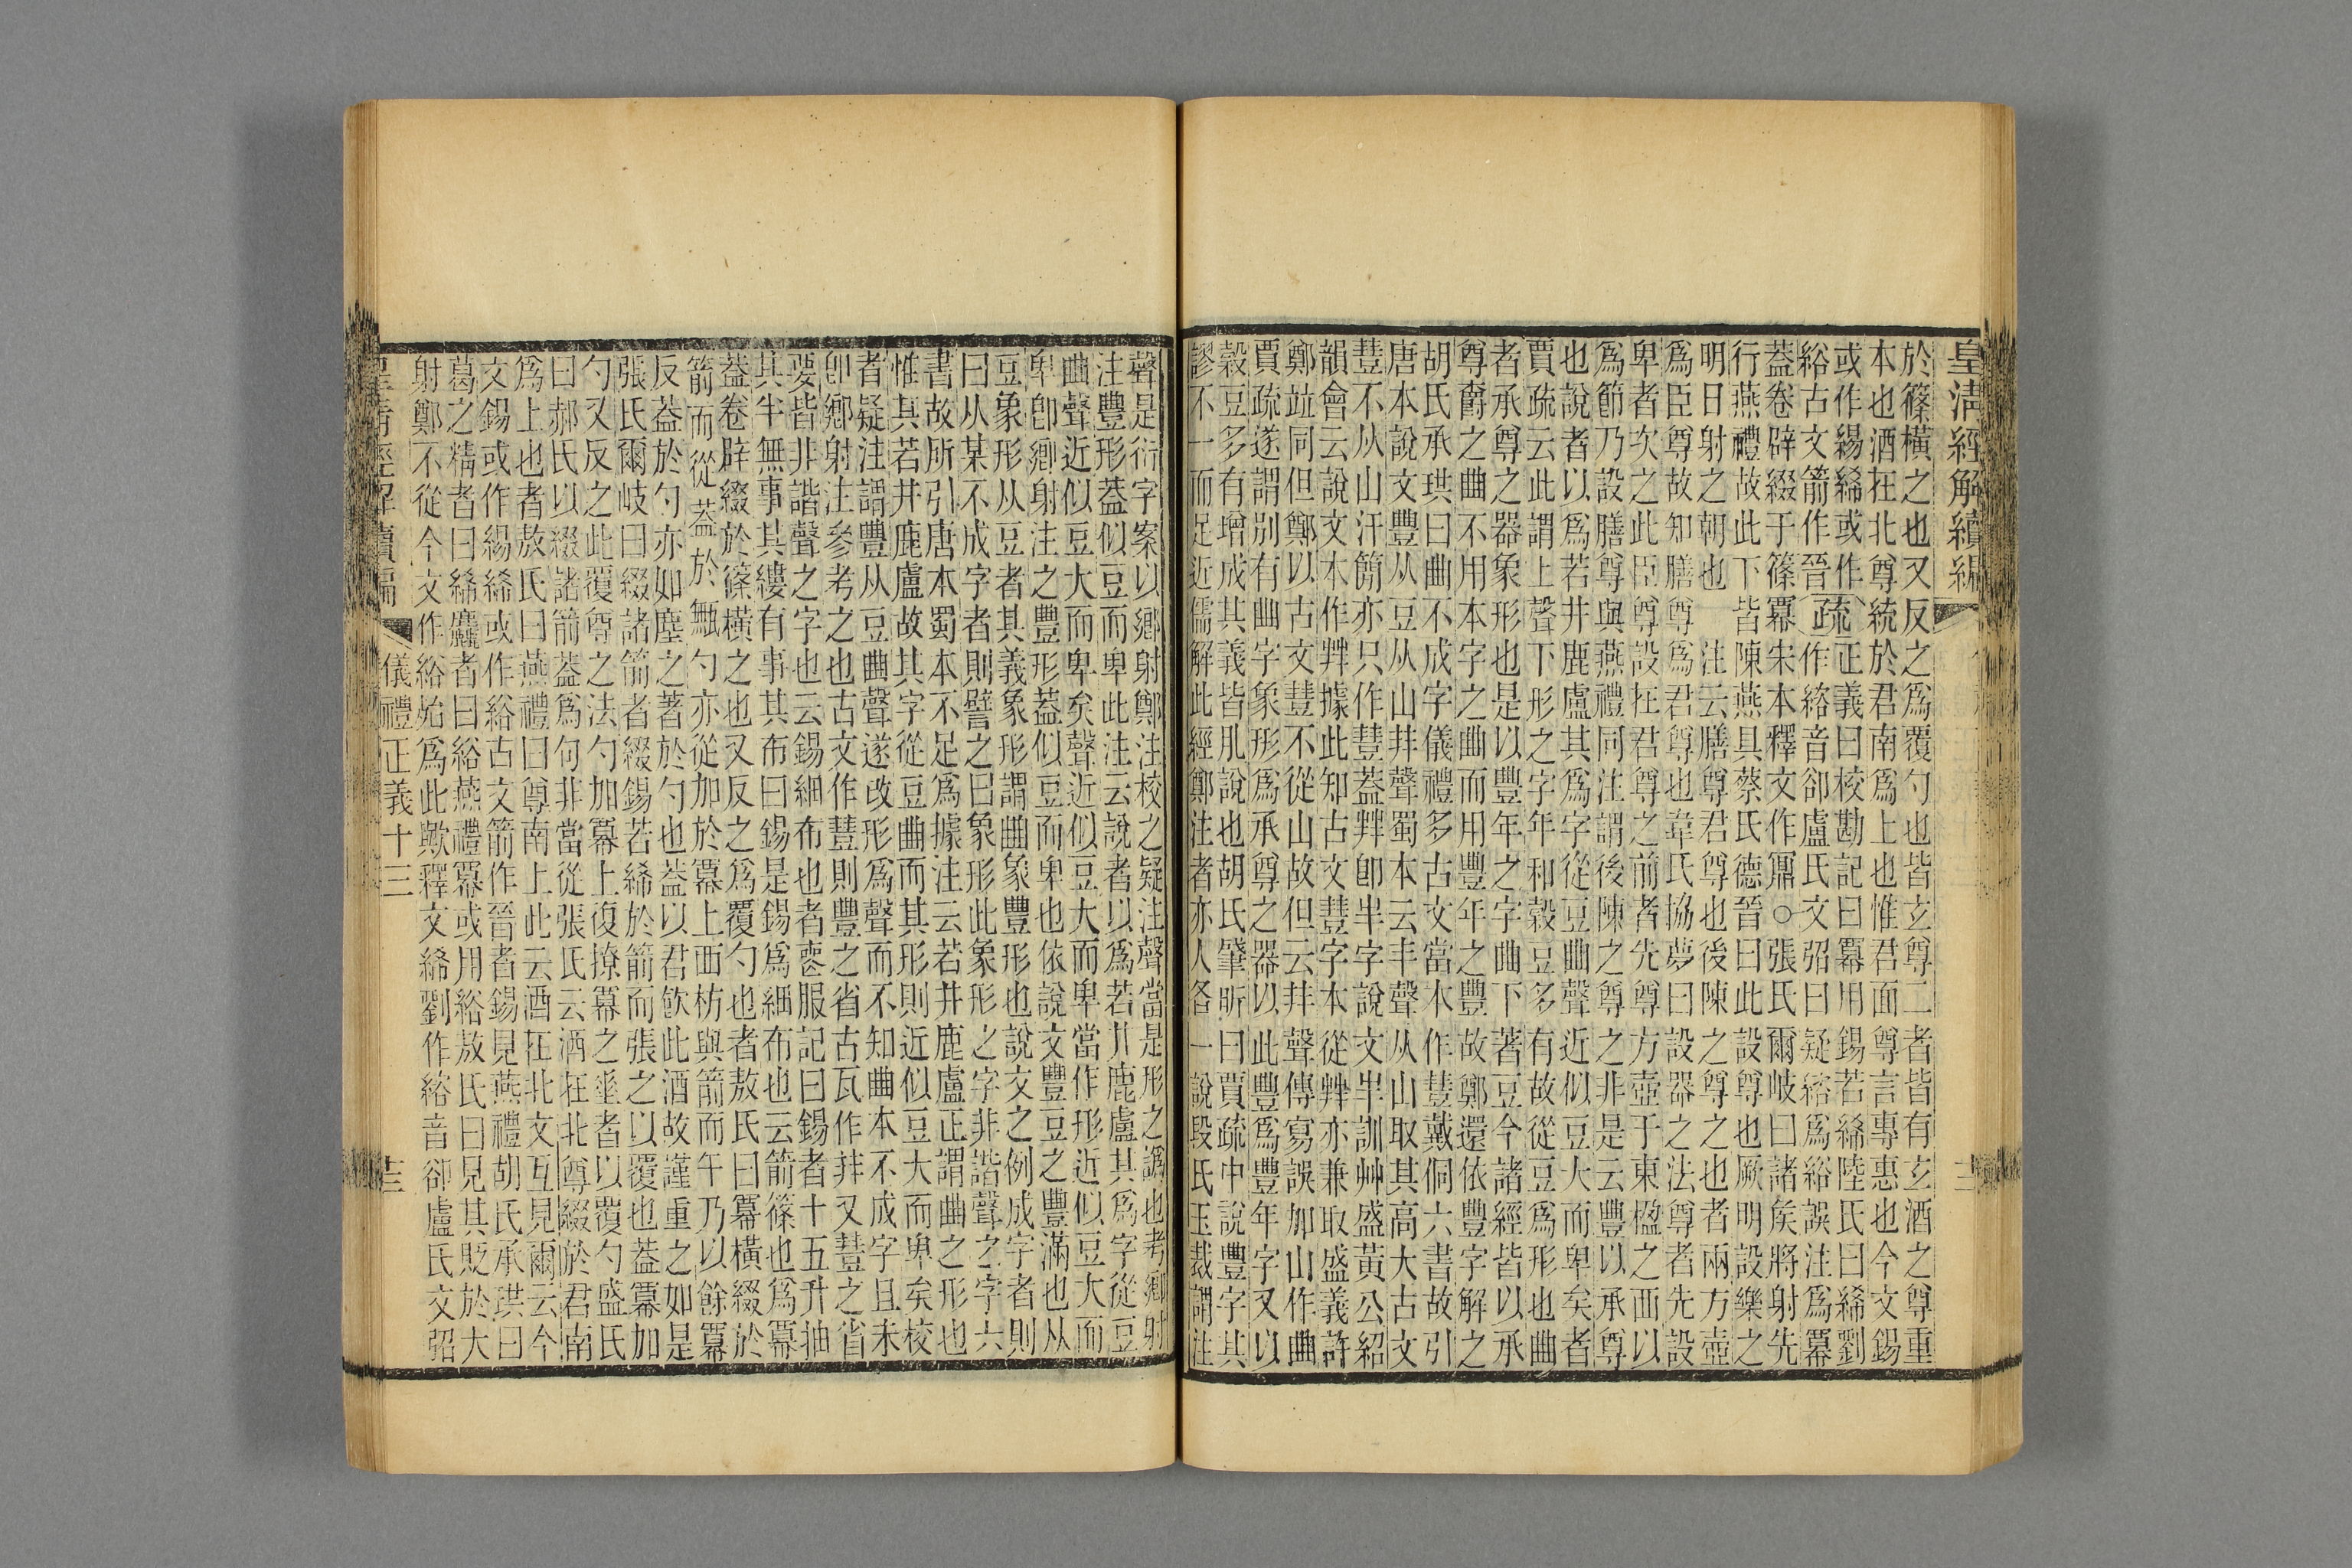 皇清經解續編
於篠橫之也又反之爲覆勺也皆玄尊二者皆有玄酒之尊重
本也酒在北尊統於君南爲上也惟君面尊言專惠也今文錫
或作緆絺或作正義曰校勘記曰冪用錫若絺陸氏曰絺劉
綌古文箭作晉疏作綌音卻盧氏文弨曰疑綌爲綌誤注爲冪
蓋卷辟綴于篠冪宋本釋文作鼏○張氏爾岐曰諸矦將射先
行燕禮故此下皆陳燕具蔡氏德晉曰此設尊也厥明設樂之
明日射之朝也 注云膳尊君尊也後陳之尊之也者兩方壺
爲臣尊故知膳尊爲君尊也韋氏協夢曰設器之法尊者先設
卑者次之此臣尊設在君尊之前者先尊方壺于東楹之西以
爲節乃設膳尊與燕禮同注謂後陳之尊之非是云豐以承尊
也說者以爲若井鹿盧其爲字從豆曲聲近似豆大而卑矣者
賈疏云此謂上聲下形之字年和穀豆多有故從豆爲形也曲
者承尊之器象形也是以豐年之字曲下著豆今諸經皆以承
尊爵之曲不用本字之曲而用豐年之豐故鄭還依豐字解之
胡氏承珙曰曲不成字儀禮多古文當本作豐戴侗六書故引
唐本說文豐从豆从山丰聲蜀本云丰聲从山取其高大古文
豐不从山汗簡亦只作豐蓋丰卽半字說文半訓艸盛黃公紹
韻會云說文本作丰據此知古文豐字本從丰亦兼取盛義許
鄭竝同但鄭以古文豐不從山故但云丰聲傳寫誤加山作曲
賈疏遂謂別有曲字象形爲承尊之器以此豐爲豐年字又以
穀豆多有增成其義皆肊說也胡氏肇昕曰賈疏中說豐字其
謬不一而足近儒解此經鄭注者亦人各一說段氏玉裁謂注
聲是衍字案以鄉射鄭注校之疑注聲當是形之譌也考鄉射
注豐形蓋似豆而卑此注云說者以爲若井鹿盧其爲字從豆
曲聲近似豆大而卑矣聲近似豆大而卑當作形近似豆大而
卑卽鄉射注之豐形蓋似豆而卑也依說文豐豆之豐滿也从
豆象形从豆者其義象形謂曲象豐形也說文之例成字者則
曰从某不成字者則譬之曰象形此象形之字非諧聲之字六
書故所引唐本蜀本不足爲據注云若井鹿盧正謂曲之形也
惟其若井鹿盧故其字從豆曲而其形則近似豆大而卑矣校
者疑注謂豐从豆曲聲遂改形爲聲而不知曲本不成字且未
卽鄉射注參考之也古文作豐則豐之省古瓦作丰又豐之省
要皆非諧聲之字也云錫細布也者喪服記曰錫者十五升抽
其半無事其縷有事其布曰錫是錫爲細布也云箭篠也爲冪
蓋卷辟綴於篠橫之也又反之爲覆勺也者敖氏曰冪橫綴於
箭而從蓋於甒勺亦從加於冪上西枋與箭而午乃以餘冪
反蓋於勺亦如塵之著於勺也蓋以君飮此酒故謹重之如是
張氏爾岐曰綴諸箭者綴錫若絺於箭而張之以覆也蓋冪加
勺又反之此覆尊之法勺加冪上復撩冪之垂者以覆勺盛氏
曰郝氏以綴諸箭蓋爲句非當從張氏云酒在北尊綴於君南
爲上也者敖氏曰燕禮曰尊南上此云酒在北文互見爾云今
文錫或作緆絺或作綌古文箭作晉者錫見燕禮胡氏承珙曰
葛之精者曰絺麤者曰綌燕禮冪或用綌敖氏曰見其貶於大
射鄭不從今文作綌始爲此歟釋文絺劉作綌音卻盧氏文弨
皇清經解續編 儀禮正義十三 十三